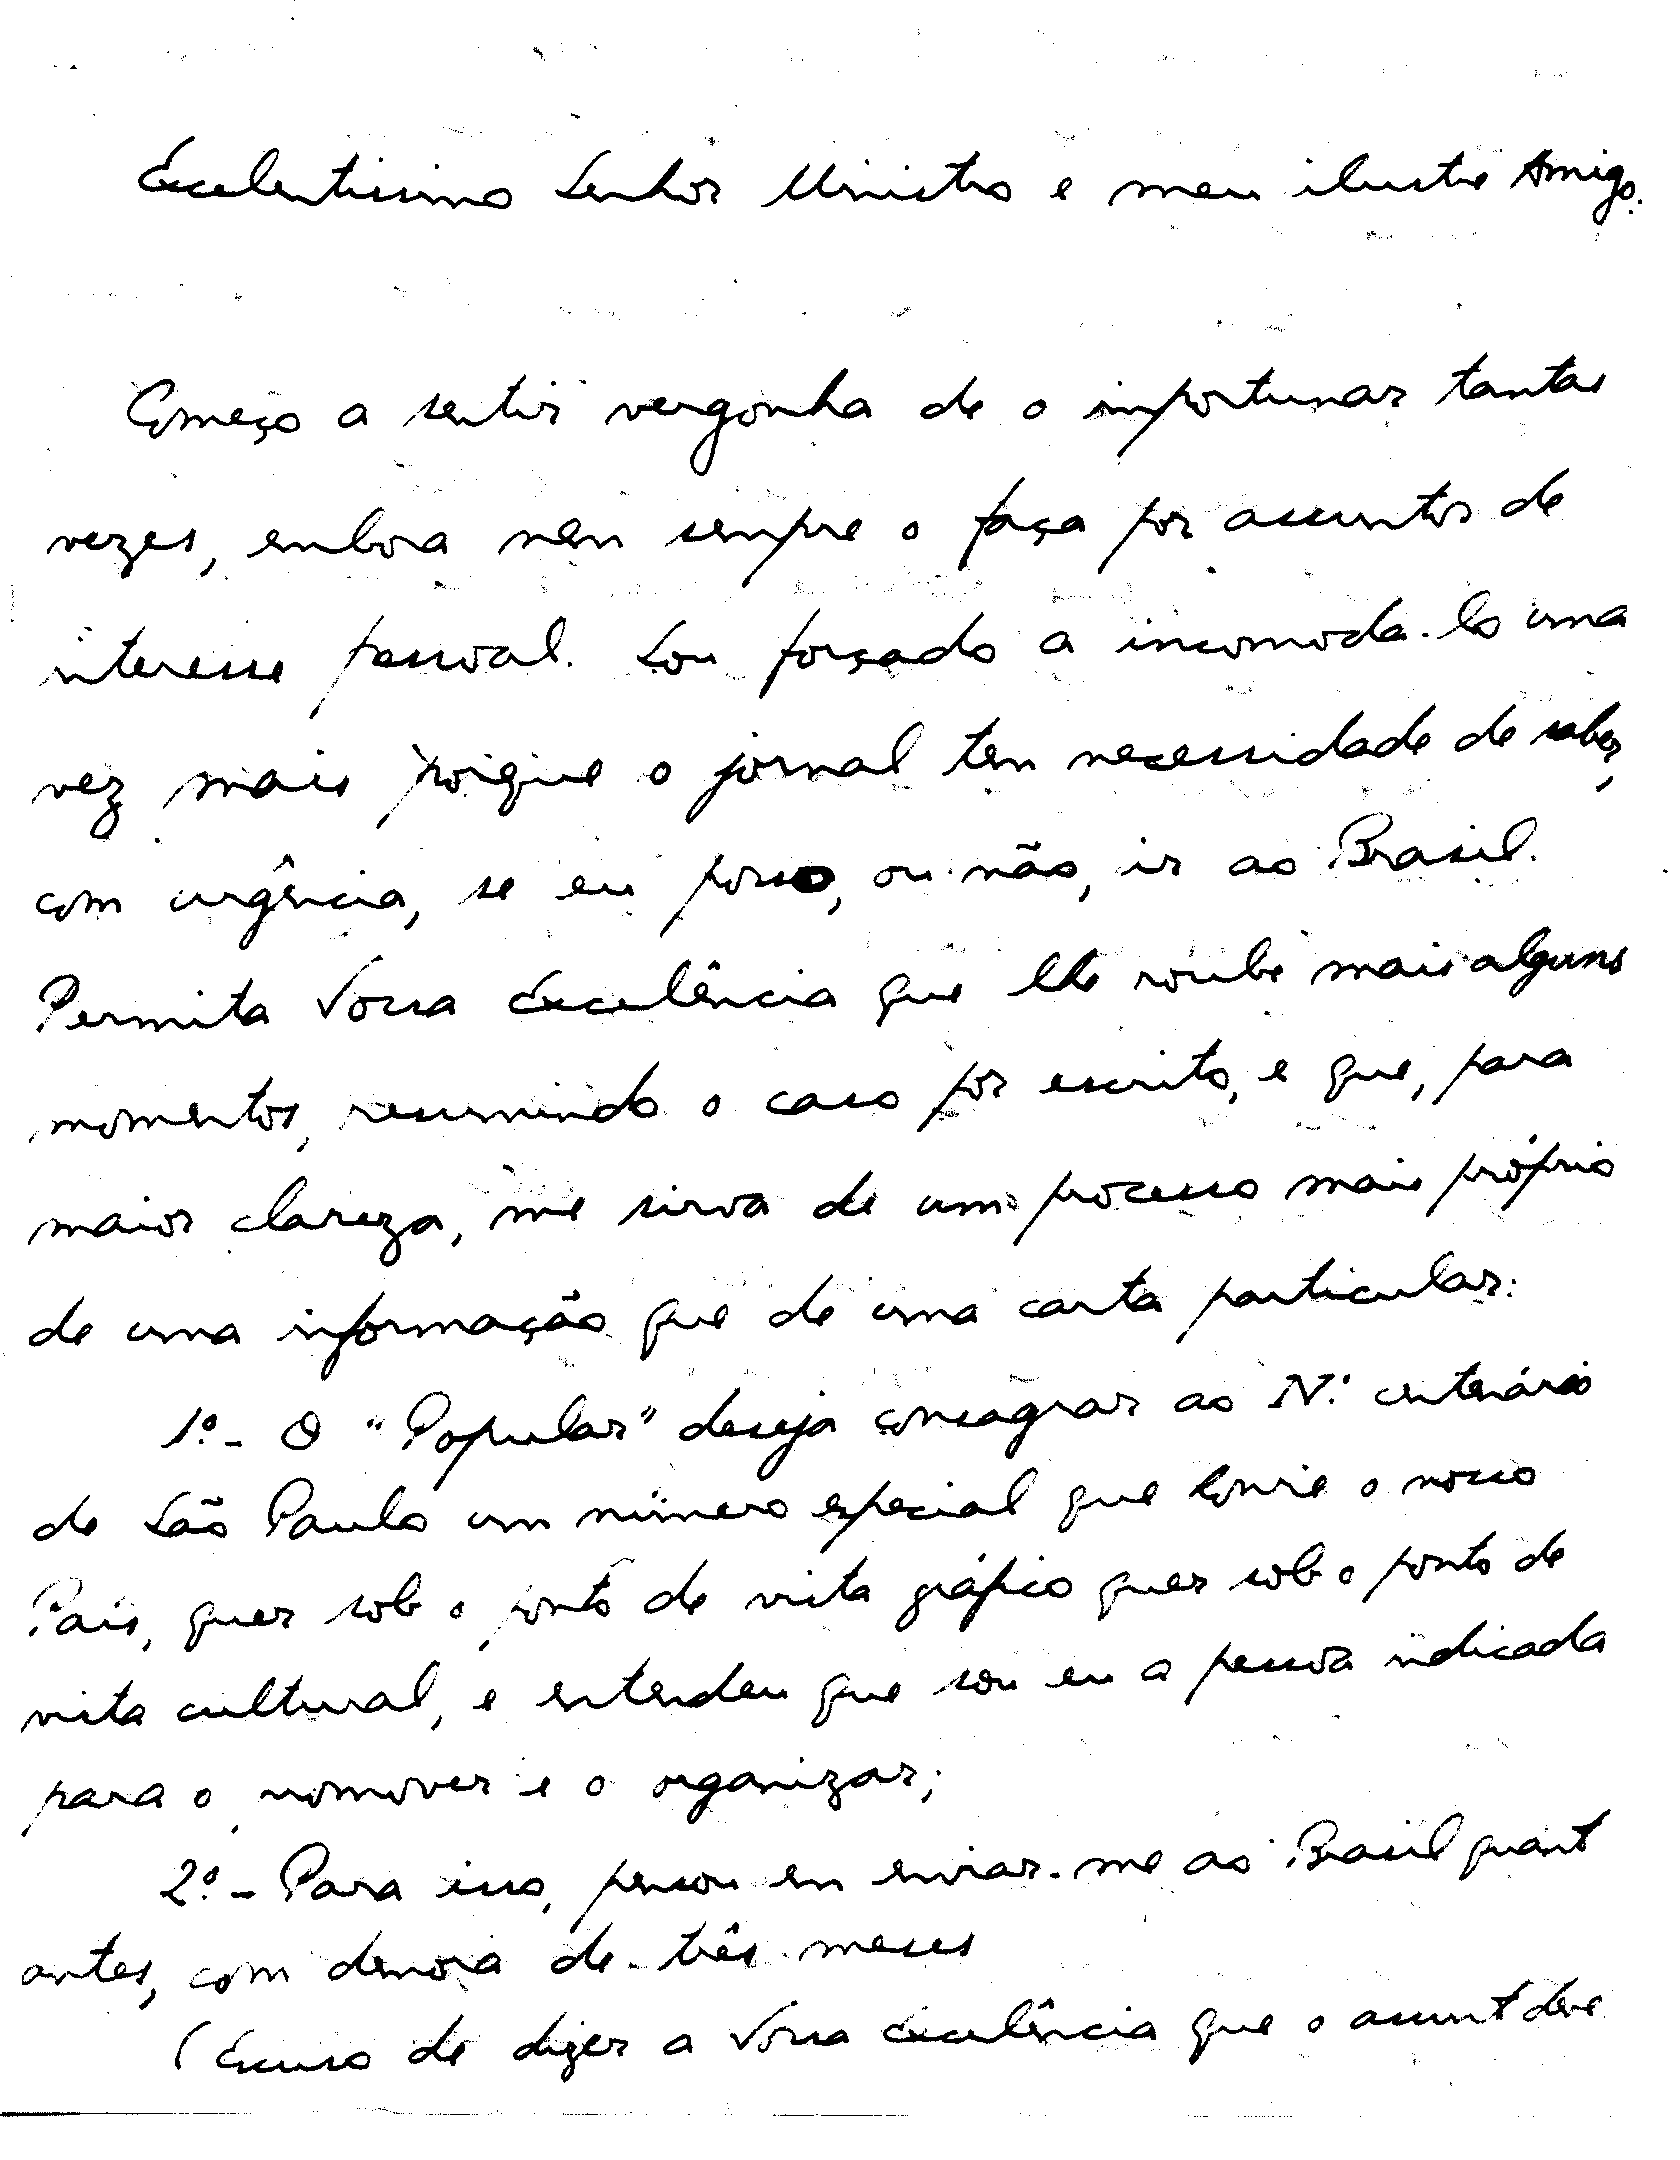 Excelentíssimo Senhor Ministro e meu ilustre Amigo:
Começo a sentir vergonha de o importunar tantas
vezes, embora nem sempre o faça por assuntos de
interesse pessoal. Sou forçado a incomoda-lo uma
vez mais porque o jornal tem necessidade de saber,
com urgência, se eu posso, ou não, ir ao Brasil.
Permita Vossa Excelência que lhe roube mais alguns
momentos, resumindo o caso por escrito, e que, para
maior clareza, me sirva de um processo mais próprio
de uma informação que de uma carta particular:
1º - O "Popular" deseja consagrar ao IV.º centenário
de São Paulo um número especial que honre o nosso
País, quer sob o ponto de vista gráfico quer sob o ponto de
vista cultural, e entendeu que sou eu a pessoa indicada
para o promover e o organizar;
2º - Para isso, pensou em enviar-me ao Brasil quanto
antes, com demora de três meses
(Escuso de dizer a Vossa Excelência que o assunto deve